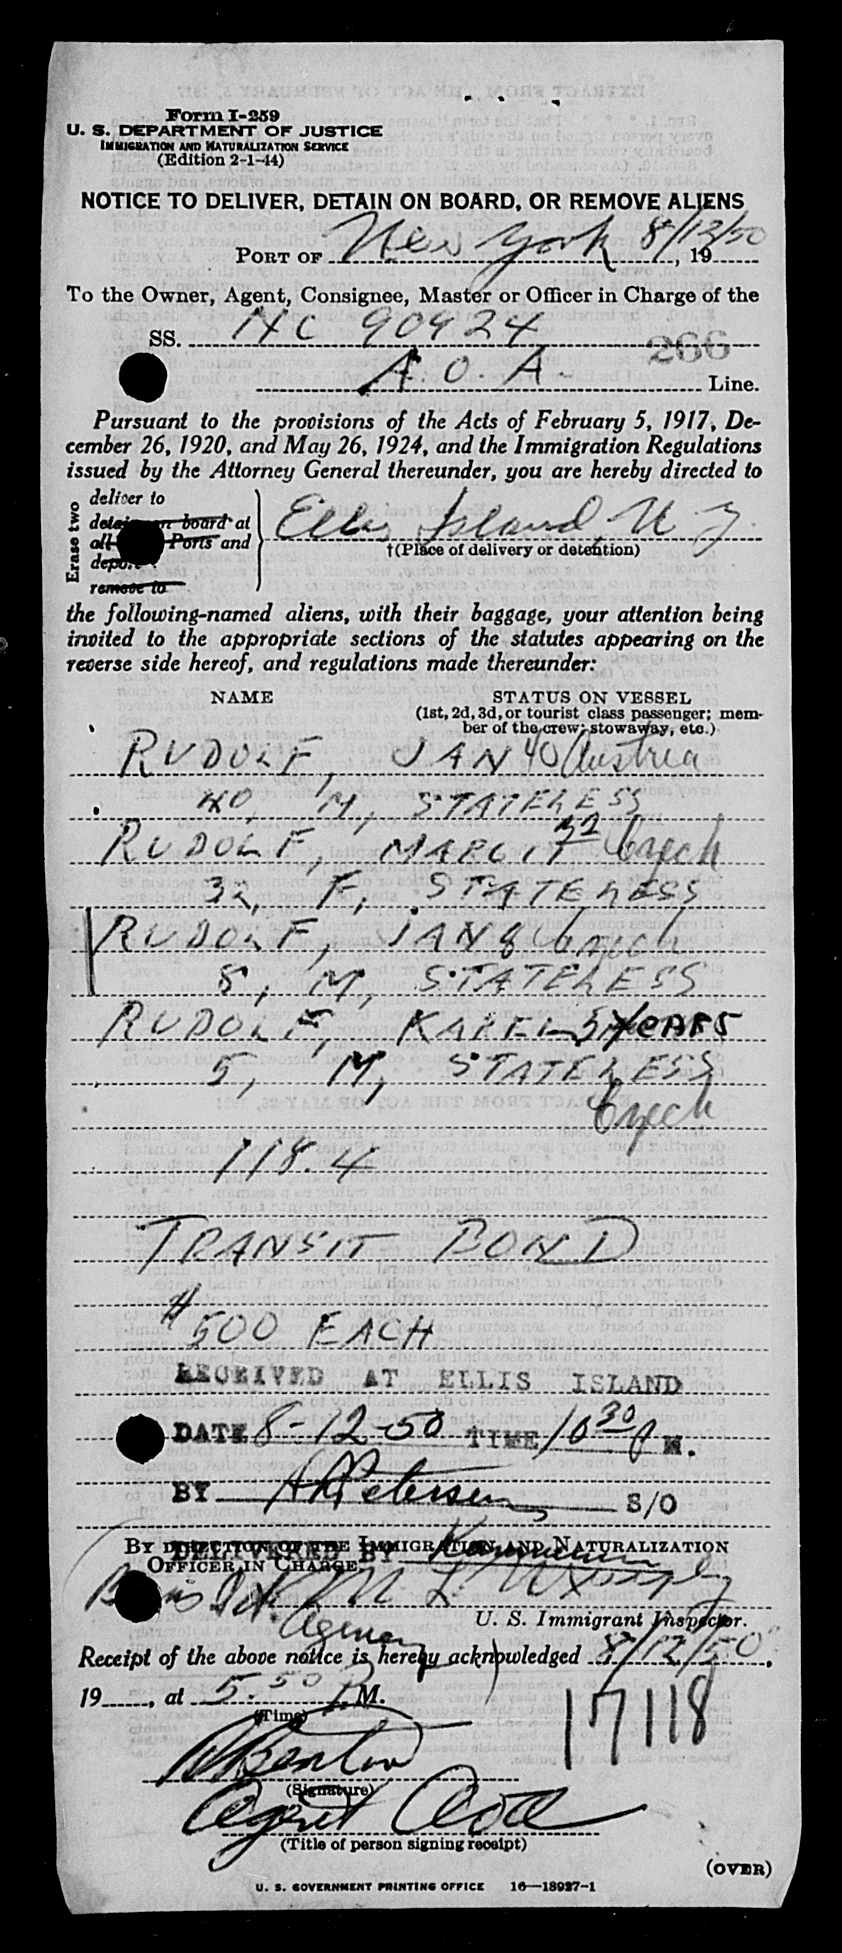 Form I-259
U. S. DEPARTMENT OF JUSTICE
IMMIGRATION AND NATURALIZATION SERVICE
(Edition 2-1-44)
NOTICE TO DELIVER, DETAIN ON BOARD, OR REMOVE ALIENS
PORT OF New York 8/12/50, 19
To the Owner, Agent, Consignee, Master or Officer in Charge of the
SS. NC 90924
266
A. O. A. Line.
Pursuant to the provisions of the Acts of February 5, 1917, De-
cember 26, 1920, and May 26, 1924, and the Immigration Regulations
issued by the Attorney General thereunder, you are hereby directed to
Erase two
deliver to
detain on board at
all Ports and
deport
remove to
Ellis Island, N. Y.
†(Place of delivery or detention)
the following-named aliens, with their baggage, your attention being
invited to the appropriate sections of the statutes appearing on the
reverse side hereof, and regulations made thereunder:
NAME STATUS ON VESSEL
(1st, 2d, 3d, or tourist class passenger; mem-
ber of the crew; stowaway, etc.)
RUDOLF, JAN 40 Austria
40, M, STATELESS
RUDOLF, MARGIT 32 Czech
32, F, STATELESS
RUDOLF, JAN 8 Czech
8, M, STATELESS
RUDOLF, KAREL 5 YEARS
5, M, STATELESS
Czech
118.4
TRANSIT BOND
$500 EACH
RECEIVED AT ELLIS ISLAND
DATE 8-12-50 TIME 10 30 P M.
BY Petersen S/O
BY DIRECTION OF THE IMMIGRATION AND NATURALIZATION
DELIVERED BY
OFFICER IN CHARGE:
U. S. Immigrant Inspector.
Agency
Receipt of the above notice is hereby acknowledged 8/12/50,
19, at 5.50 P. M.
(Time)
17118
Benton
(Signature)
Agent AOA
(Title of person signing receipt)
(OVER)
U. S. GOVERNMENT PRINTING OFFICE 16—18927-1